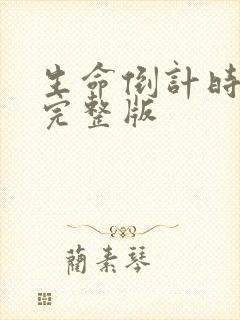 生命倒計時
完整版
蘭素琴